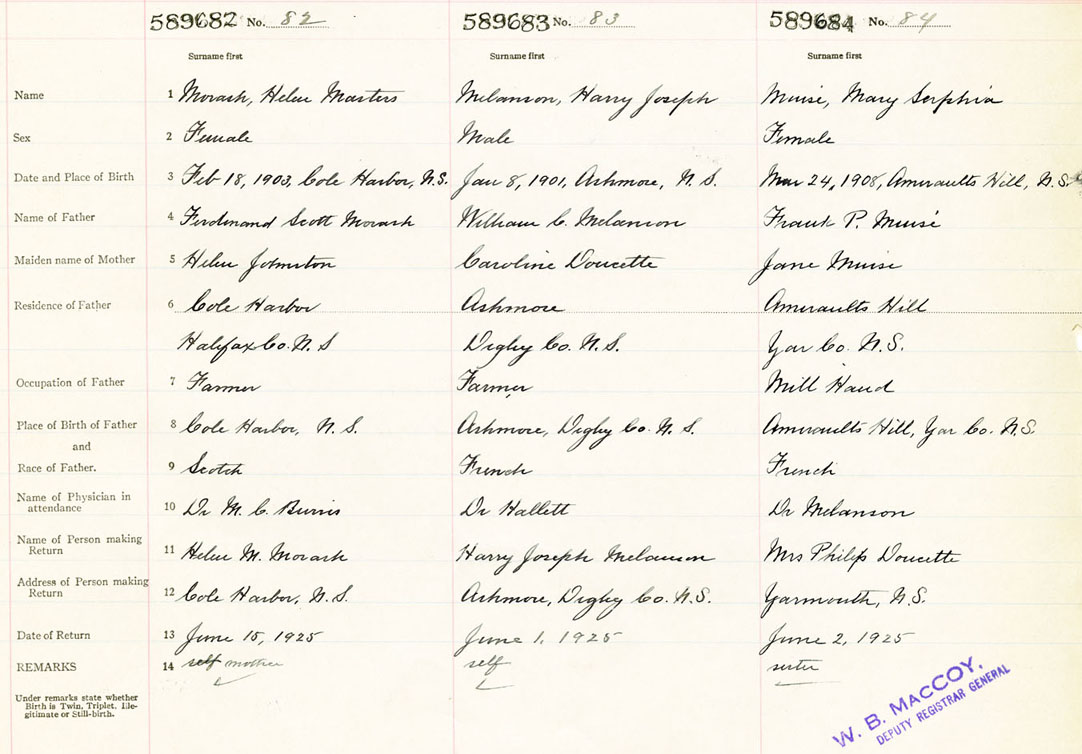 589682 No. 82 589683 No. 83 589684 No. 84
Surname first Surname first Surname first
Name 1 Morash, Helen Masters Melanson, Harry Joseph Muise, Mary Serphia
Sex 2 Female Male Female
Date and Place of Birth 3 Feb 18, 1903, Cole Harbor, N.S. Jan 8, 1901, Ashmore, N.S. Mar 24, 1908, Amiraults Hill, N.S.
Name of Father 4 Ferdinand Scott Morash William C. Melanson Frank P. Muise
Maiden name of Mother 5 Helen Johnston Caroline Doucette Jane Muise
Residence of Father 6 Cole Harbor Ashmore Amiraults Hill
Halifax Co. N.S Digby Co. N.S. Yar Co. N.S.
Occupation of Father 7 Farmer Farmer Mill Hand
Place of Birth of Father 8 Cole Harbor, N.S. Ashmore, Digby Co. N.S. Amiraults Hill, Yar Co. N.S.
and
Race of Father. 9 Scotch French French
Name of Physician in
attendance 10 Dr M. C. Burris Dr Hallett Dr Melanson
Name of Person making
Return 11 Helen M. Morash Harry Joseph Melanson Mrs Philip Doucette
Address of Person making
Return 12 Cole Harbor, N.S. Ashmore, Digby Co. N.S. Yarmouth, N.S.
Date of Return 13 June 15, 1925 June 1, 1925 June 2, 1925
REMARKS 14 self mother self sister
Under remarks state whether
Birth is Twin, Triplet, Ille-
gitimate or Still-birth.
W. B. MACCOY,
DEPUTY REGISTRAR GENERAL